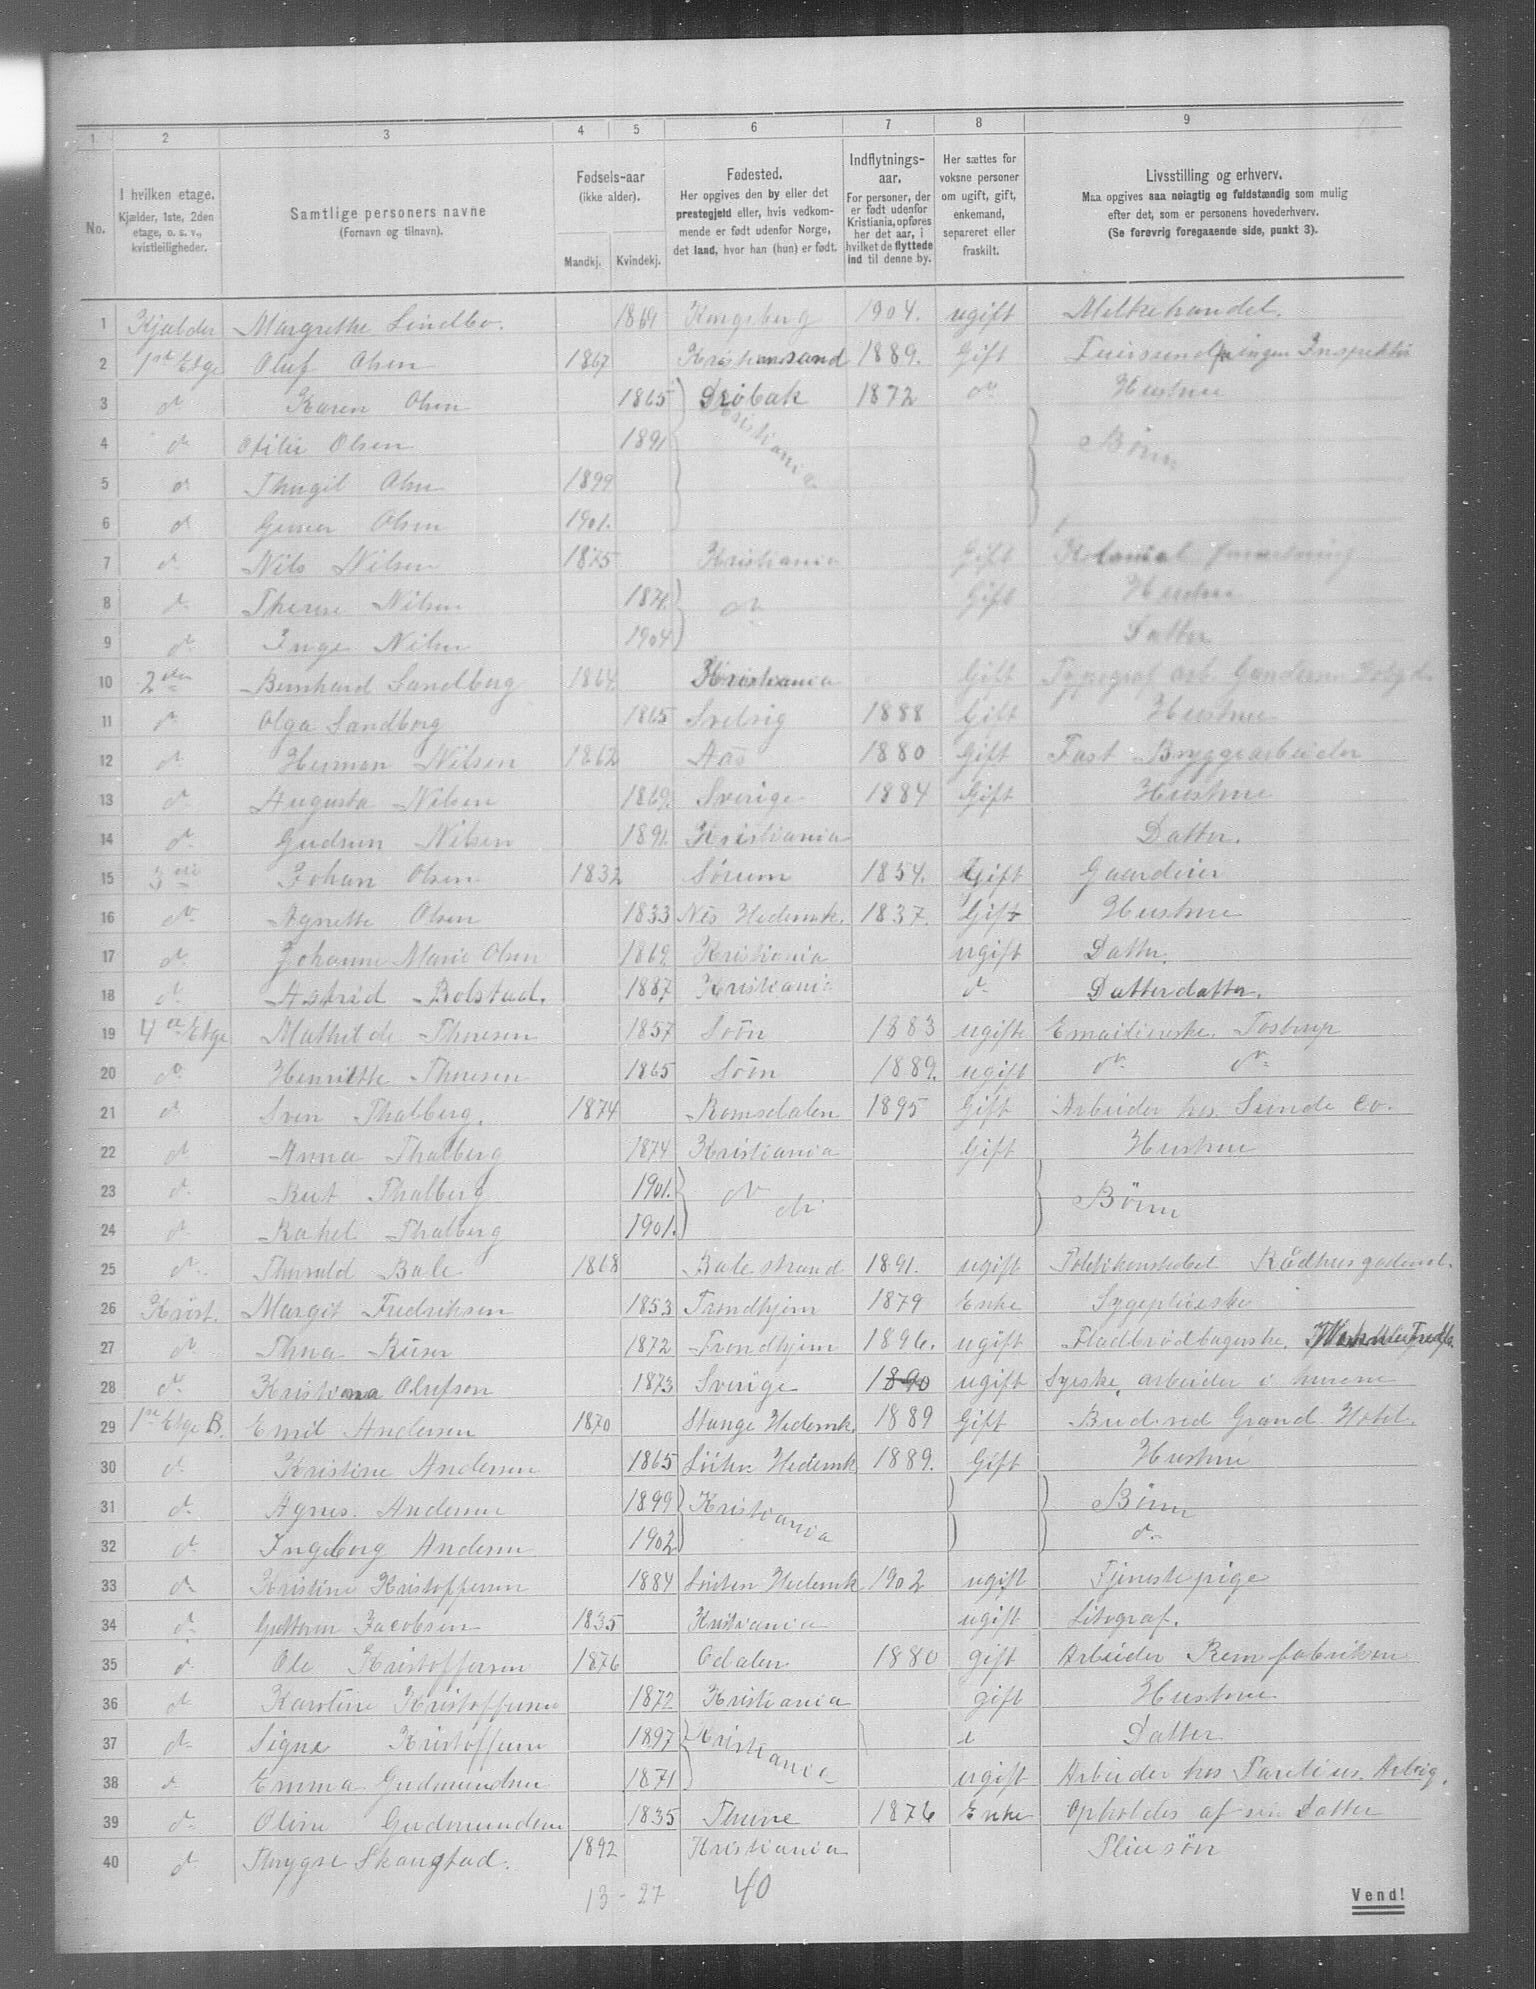 1 2 3 4 5 6 7 8 9
No.
I hvilken etage.
Kjælder, 1ste, 2den
etage, o. s. v.,
kvistleiligheder.
Samtlige personers navne
(Fornavn og tilnavn).
Fødsels-aar
(ikke alder).
Mandkj. Kvindekj.
Fødested.
Her opgives den by eller det
prestegjeld eller, hvis vedkom-
mende er født udenfor Norge,
det land, hvor han (hun) er født.
Indflytnings-
aar.
For personer, der
er født udenfor
Kristiania, opføres
her det aar, i
hvilket de flyttede
ind til denne by.
Her sættes for
voksne personer
om ugift, gift,
enkemand,
separeret eller
fraskilt.
Livsstilling og erhverv.
Maa opgives saa nøiagtig og fuldstændig som mulig
efter det, som er personens hovederhverv.
(Se forøvrig foregaaende side, punkt 3).
1 Kjælder Margrethe Lindbo. 1869 Kongsberg 1904. ugift Melkehandel.
2 1st Etge Oluf Olsen 1867 Kristiansand 1889. Gift Inspektør
3 do Karen Olsen 1865 Drøbak 1872 do Hustru
4 do Otilie Olsen 1891 Kristiania Børn
5 do Olsen 1899
6 do Olsen 1901.
7 do Nils Nilsen 1875 Kristiania Gift Kolonial forretning
8 do Therese Nilsen 1874 do Gift Hustru
9 do Inga Nilsen 1904 Datter
10 2den Bernhard Sandberg 1864 Kristiania Gift Typograf
11 do Olga Sandberg 1865 Svelvig 1888 Gift Hustru
12 do Herman Nilsen 1862 Aas 1880 Gift Fast Bryggearbeider
13 do Augusta Nilsen 1869. Sverige 1884 Gift Hustru
14 do Gudrun Nilsen 1891. Kristiania Datter.
15 3die Johan Olsen 1832 Sørum 1854. Gift Gaardeier
16 do Agnette Olsen 1833 Nes Hedemk. 1837. Gift Hustru
17 do Johanne Marie Olsen 1869 Kristiania ugift Datter.
18 do Astrid Bolstad. 1887 Kristiania do Datterdatter.
19 4de Etge Mathilde Thoresen 1857 Soön 1883 ugift Emailleuske. Tostrup
20 do Henriette Thoresen 1865 Soön 1889. ugift do do
21 do Sven Thalberg. 1874 Romsdalen 1895 Gift Arbeider hos Sunde Co.
22 do Anna Thalberg 1874 Kristiania Gift Hustru
23 do Rut Thalberg 1901. do Børn
24 do Rakel Thalberg 1901.
25 do Thorvald Bale 1868 Balestrand 1891. ugift Politikonstabel
26 Kvist. Margit Fredriksen 1853 Trondhjem 1879 Enke Sygepleierske
27 do Riiser 1872 Trondhjem 1896. ugift Fladbrødbagerske.
28 do Kristiana Olufson 1873 Sverige 1890 ugift Syerske, arbeider i husene
29 1ste Etge B. Emil Andersen 1870 Stange Hedemk. 1889 Gift Bud ved Grand Hotel.
30 do Kristine Andersen 1865 Hedemk 1889. Gift Hustru
31 do Agnes. Andersen 1899 Kristiania Børn
32 do Ingeborg Andersen 1902 do
33 do Kristine Kristoffersen 1884 Hedemk 1902 ugift Tjenestepige
34 do Guttorm Jacobsen 1835 Kristiania ugift Litograf.
35 do Ole Kristoffersen 1876 Odalen 1880 gift Arbeider Remfabriken
36 do Karoline Kristoffersen 1872 Kristiania gift Hustru
37 do Signe Kristoffersen 1897 Kristiania Datter
38 do Emma Gudmundsen 1871 ugift Arbeider hos
39 do Oline Gudmundsen 1835 Thune 1876 Enke Opholdes af sin Datter
40 do Thrygve Skaugstad. 1892 Kristiania Pliesøn
13 - 27 40
Vend!